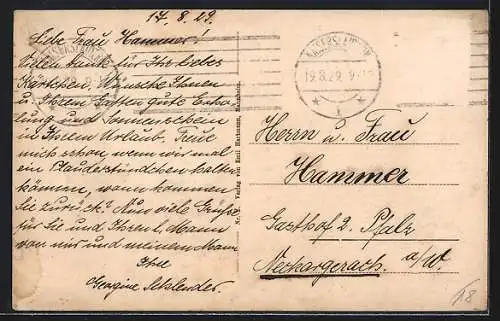 17.8.29.
Liebe Frau Hammer!
Vielen Dank für Ihr liebes
Kärtchen. Wünsche Ihnen
u. Ihrem Gatten gute Erho-
lung und Sonnenschein
in Ihrem Urlaub. Freue
mich schon, wenn wir mal
ein Plauderstündchen halten
können, wann kommen
Sie zurück? Nun viele Grüße
für Sie und Ihren l. Mann
von mir und meinem Mann
Ihre
Georgine Schlender.
Verlag von Emil Hartmann, Mannheim.
19.8.29. 9-
Herrn u. Frau
Hammer
Gasthof z. Pfalz
Neckargerach. a/N.
18